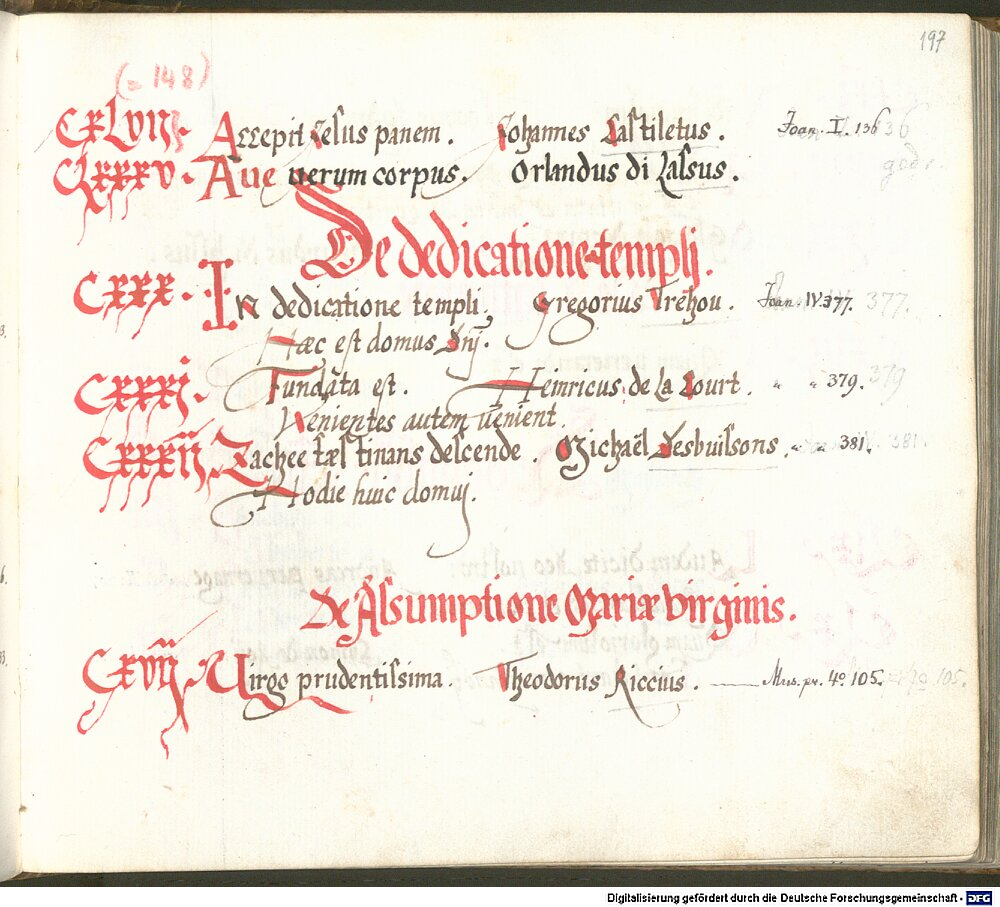 197
(= 148)
CXLVIIJ. Accepit Jesus panem. Johannes Castiletus. Joan. I. 136
CLXXXV. Aue uerum corpus. Orlandus di Lassus.
De dedicatione templj.
CXXX. In dedicatione templi. Gregorius Trehou. Joan. IV. 377. 377.
Hæc est domus Dnj.
CXXXJ. Fundata est. Heinricus de la Court. " " 379. 379
Venientes autem uenient.
CXXXIJ. Zachee fæstinans descende. Michaël Desbuissons. " " 381. 381.
Hodie huic domuj.
De Assumptione Mariæ virginis.
CXVIJ. Virgo prudentissima. Theodorus Riccius. — Mus. pr. 4º 105.
Digitalisierung gefördert durch die Deutsche Forschungsgemeinschaft - DFG